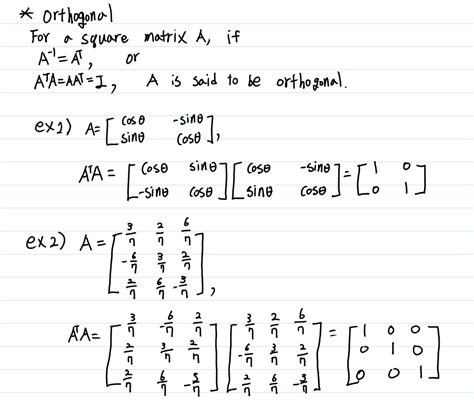 * Orthogonal
For a square matrix A, if
A⁻¹=Aᵀ, or
AᵀA=AAᵀ=I, A is said to be orthogonal.
ex1) A=[cosθ -sinθ
sinθ cosθ],
AᵀA=[cosθ sinθ
-sinθ cosθ][cosθ -sinθ
sinθ cosθ]=[1 0
0 1]
ex2) A=[3/7 2/7 6/7
-6/7 3/7 2/7
2/7 6/7 -3/7],
AᵀA=[3/7 -6/7 2/7
2/7 3/7 2/7
2/7 6/7 -3/7][3/7 2/7 6/7
-6/7 3/7 2/7
2/7 6/7 -3/7]=[1 0 0
0 1 0
0 0 1]